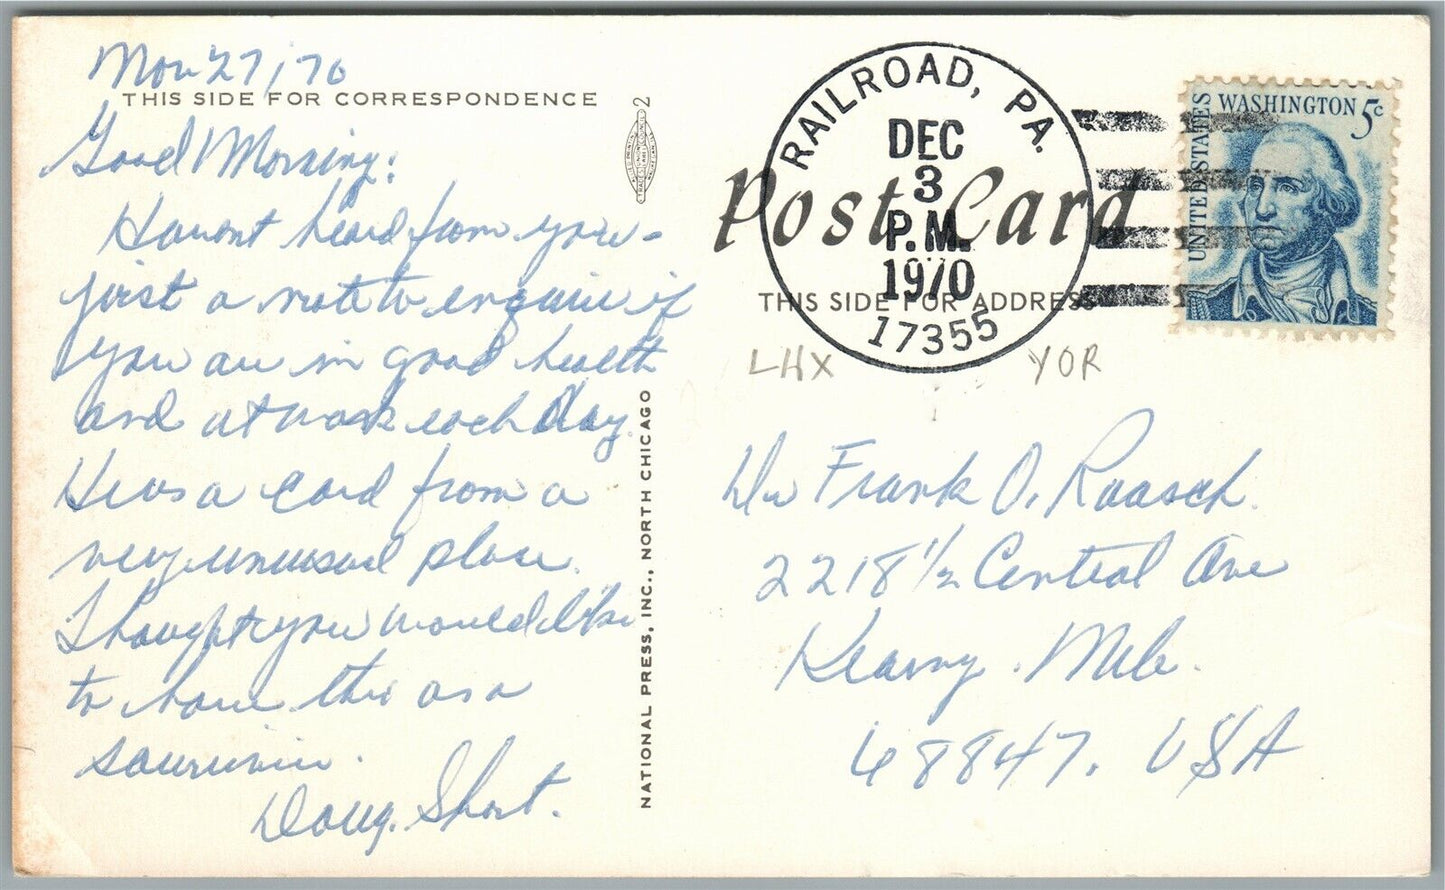 Nov 27/70
THIS SIDE FOR CORRESPONDENCE
Good Morning:
Havent heard from you -
just a note to enquire if
you are in good health
and at work each day.
Here is a card from a
very unusual place.
Thought you would like
to have this as a
souvinir.
Doug. Short.
2
NATIONAL PRESS, INC., NORTH CHICAGO
RAILROAD, PA.
DEC
3
P.M.
1970
17355
Post Card
THIS SIDE FOR ADDRESS
UNITED STATES
WASHINGTON 5c
LHX YOR
Frank O. Raasch.
2218 1/2 Central Ave
Kearny. Neb.
68847. USA